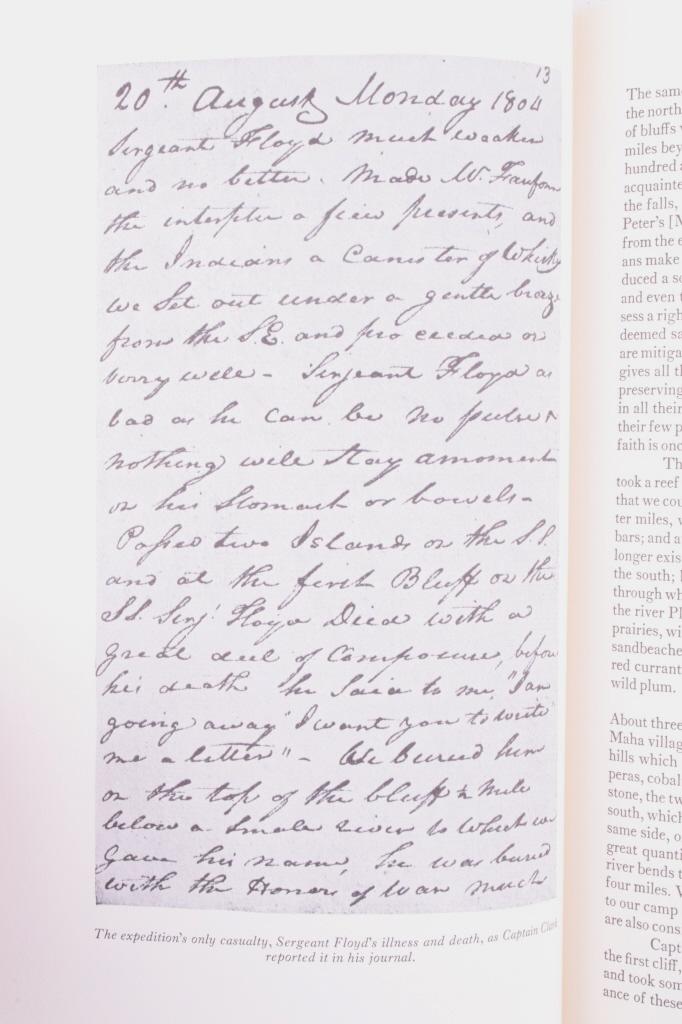 13
20.th August Monday 1804
Sergeant Floyd much weaker
and no better. Made Mr. Faufonn
the interpter a fiew presents, and
the Indians a Canister of Whisky
we Set out under a gentle breeze
from the S.E. and pro ceeded on
verry well - Serjeant Floyd as
bad as he can be no pulse &
nothing will Stay a moment
on his Stomach or bowels -
Passed two Islands on the S.S.
and at the first Bluff on the
S.S. Serjt. Floyd Died with a
great deel of Composure, before
his death he Said to me, "I am
going away" I want you to write
me a letter" - We buried him
on the top of the bluff ½ Mile
below a Small river to which we
Gave his name, he was buried
with the Honors of War much
The expedition's only casualty, Sergeant Floyd's illness and death, as Captain Clark
reported it in his journal.
The
the north
of bluffs
miles
hundred
acquainte
the falls,
Peter's [M
from the
ans make
duced a
and even
sess a righ
deemed
are mitiga
gives all
preserving
in all their
their few
faith is
Th
took a reef
that we
ter miles,
bars; and
longer exis
the south;
through
the river Pl
prairies,
sandbeache
red currant
wild plum.
About three
Maha villag
hills which
peras, cobal
stone, the
south, which
same side,
great quanti
river bends
four miles.
to our camp
are also cons
Capt
the first cliff,
and took som
ance of these